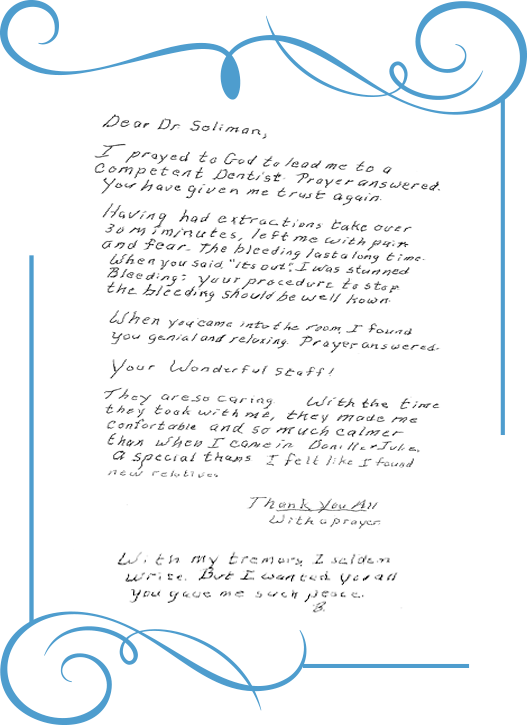 Dear Dr Soliman,
I prayed to God to lead me to a
competent Dentist. Prayer answered.
You have given me trust again.
Having had extractions take over
30 miminutes, left me with pain
and fear. The bleeding last a long time.
When you said, "Its out", I was stunned
Bleeding: your procedure to stop
the bleeding should be well kown.
When you came into the room, I found
you genial and relaxing. Prayer answered.
Your Wonderful Staff!
They are so caring. With the time
they took with me, they made me
comfortable and so much calmer
than when I came in
A special thans I felt like I found
new relatives
Thank You All
With a prayer
With my tremors, I seldom
write. But I wanted
you gave me such peace.
B.